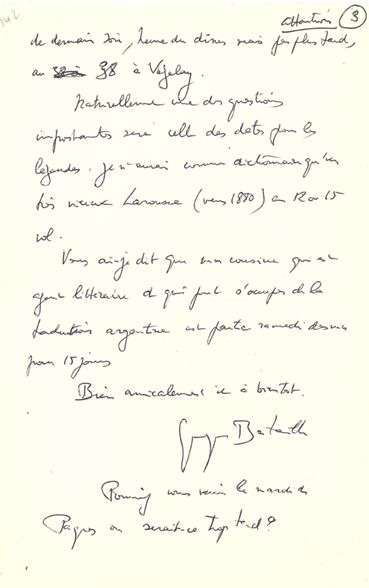 attention 3
de demain soir, heure du dîner mais pas plus tard,
au 38 à Vézelay.
Naturellement une des questions
importantes sera celle des dates pour les
légendes. Je n'aurai comme dictionnaire qu'un
très vieux Larousse (vers 1880) en 12 ou 15
vol.
Vous ai-je dit que ma cousine qui est
agent littéraire et qui peut s'occuper de la
traduction argentine est partie samedi dernier
pour 15 jours
Bien amicalement et à bientôt.
Georges Bataille
Pourriez vous venir le mardi de
Pâques ou serait-ce trop tard ?